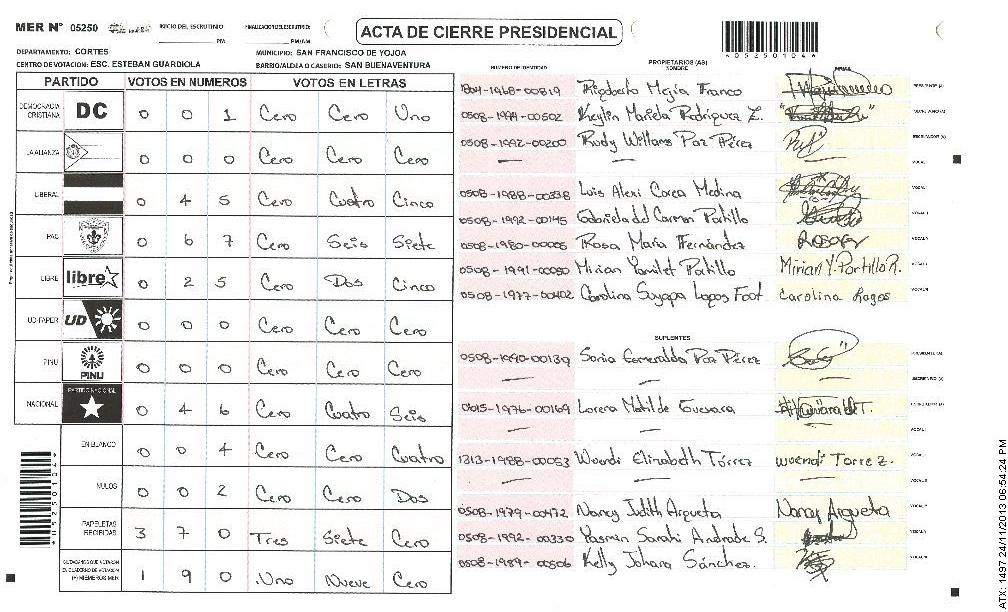 MER Nº 05250 INICIO DEL ESCRUTINIO PM FINALIZACION DEL ESCRUTINIO: PM/AM
ACTA DE CIERRE PRESIDENCIAL
*05250104*
DEPARTAMENTO: CORTES MUNICIPIO: SAN FRANCISCO DE YOJOA
CENTRO DE VOTACION: ESC. ESTEBAN GUARDIOLA BARRIO/ALDEA O CASERIO: SAN BUENAVENTURA
PARTIDO VOTOS EN NUMEROS VOTOS EN LETRAS
DEMOCRACIA CRISTIANA DC 0 0 1 Cero Cero Uno
LA ALIANZA 0 0 0 Cero Cero Cero
LIBERAL 0 4 5 Cero Cuatro Cinco
PAC 0 6 7 Cero Seis Siete
LIBRE libre 0 2 5 Cero Dos Cinco
UD-FAPER UD 0 0 0 Cero Cero Cero
PINU PINU 0 0 0 Cero Cero Cero
NACIONAL PARTIDO NACIONAL 0 4 6 Cero Cuatro Seis
EN BLANCO 0 0 4 Cero Cero Cuatro
NULOS 0 0 2 Cero Cero Dos
PAPELETAS RECIBIDAS 3 7 0 Tres Siete Cero
CIUDADANOS QUE VOTARON EN CUADERNO DE VOTACION (+) MIEMBROS MER 1 9 0 Uno Nueve Cero
NUMERO DE IDENTIDAD PROPIETARIOS (AS) NOMBRE FIRMA
1804-1968-00819 Rigoberto Mejía Franco PRESIDENTE (A)
0508-1994-00502 Keylin Mariela Rodríguez Z.
0508-1992-00200 Rudy Williams Paz Pérez
— — — VOCAL
0508-1988-00338 Luis Alexi Corea Medina VOCAL
0508-1992-00145 Gabriela del Carmen Portillo VOCAL
0508-1980-00005 Rosa María Fernández VOCAL
0508-1991-00080 Mirian Yamilet Portillo Mirian Y. Portillo R. VOCAL
0508-1977-00402 Carolina Suyapa Lagos Foot Carolina Lagos VOCAL
SUPLENTES
0508-1990-00139 Sonia Esmeralda Paz Pérez PRESIDENTE (A)
— — — SECRETARIO (A)
0615-1976-00169 Lorena Matilde Guevara
— — — VOCAL
1313-1988-00053 Wuendi Elizabeth Tórrez Wuendi Torrez. VOCAL
— — — VOCAL
0508-1979-00472 Nancy Judith Argueta Nancy Argueta VOCAL
0508-1992-00330 Yasmin Sarahi Andrade S. VOCAL
0508-1989-00506 Kelly Johana Sánchez. VOCAL
*05250104*
ATX: 1497 24/11/2013 06:54:24 PM